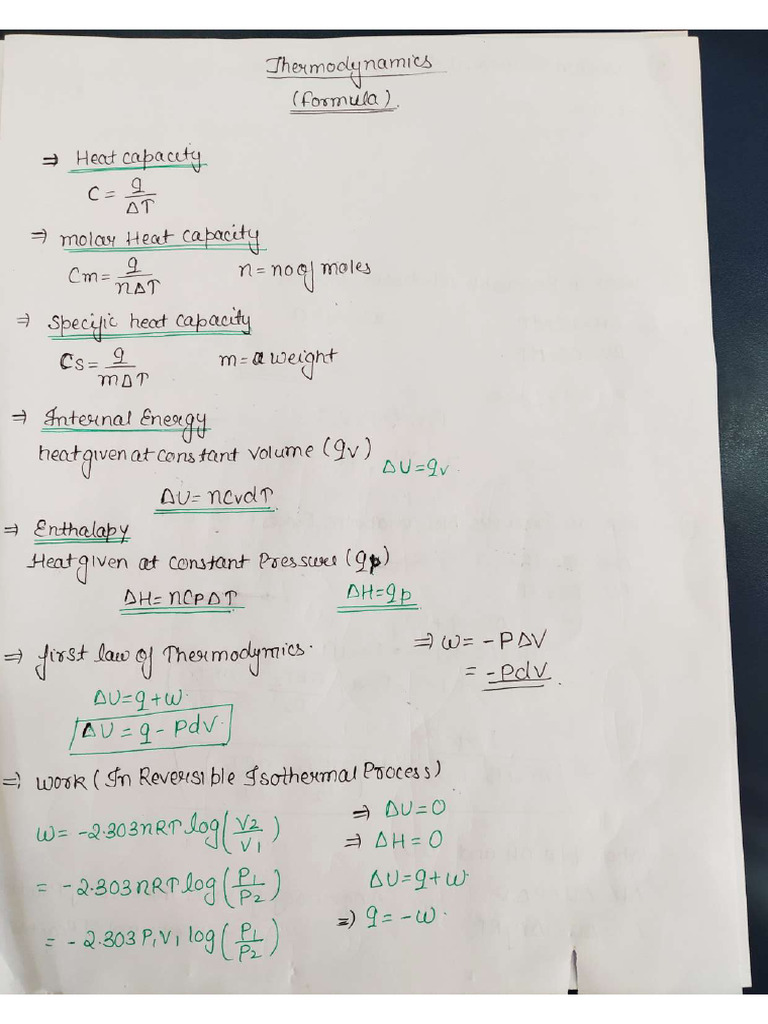 Thermodynamics
(formula).
⇒ Heat capacity
C = q/ΔT
⇒ molar Heat capacity
Cm = q/nΔT n = no of moles
⇒ Specific heat capacity
Cs = q/mΔT m = weight
⇒ Internal Energy
heat given at constant volume (qv) ΔU = qv.
ΔU = nCvdT
⇒ Enthalapy
Heat given at constant Pressure (qp)
ΔH = nCpΔT ΔH = qp
⇒ first law of Thermodymics. ⇒ w = -PΔV
= -PdV.
ΔU = q + w.
ΔU = q - PdV.
⇒ work (In Reversible Isothermal Process)
w = -2.303nRT log(V2/V1) ⇒ ΔU = 0
⇒ ΔH = 0
= -2.303nRT log(P1/P2) ΔU = q + w.
= -2.303 P1V1 log(P1/P2) ⇒ q = -w.